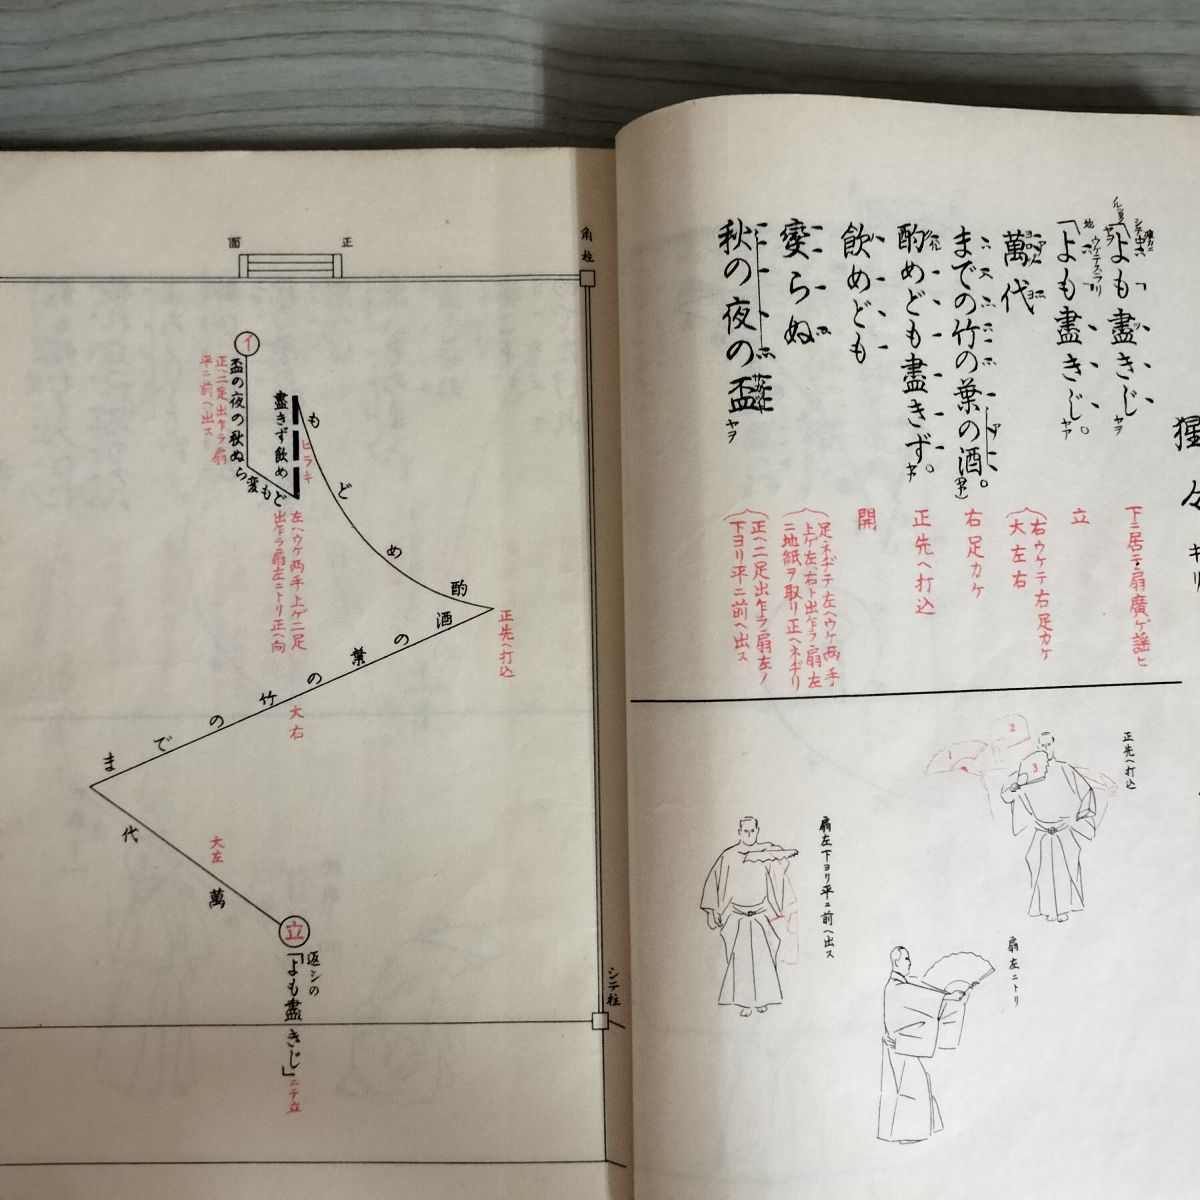 猩々 キリ
「よも盡きじ
「よも盡きじ。
萬代
までの竹の葉の酒。
酌めども盡きず。
飲めども
變らぬ
秋の夜の盃
下ニ居テ扇廣ゲ謡ヒ
立
右ウケテ右足カケ
大左右
右足カケ
正先ヘ打込
開
足ネヂテ左ヘウケ両手
上ゲ左、右ト出乍ラ扇左
ニ地紙ヲ取リ正ヘネヂリ
正ヘ二足出乍ラ扇左ノ
下ヨリ平ニ前ヘ出ス
正先ヘ打込
1
2
3
扇左下ヨリ平ニ前ヘ出ス
扇左ニトリ
角柱
正
面
イ
盃の夜の秋ぬら変もど
正ヘ二足出乍ラ扇
平ニ前ヘ出ス
盡きず飲め
も
ど
め
酌
ヒラキ
左ヘウケ両手上ゲ二足
出乍ラ扇左ニトリ正ヘ向
正先ヘ打込
酒
の
葉
の
竹
の
で
ま
大右
代
萬
大左
立
返シの
「よも盡きじ」ニテ立
シテ柱